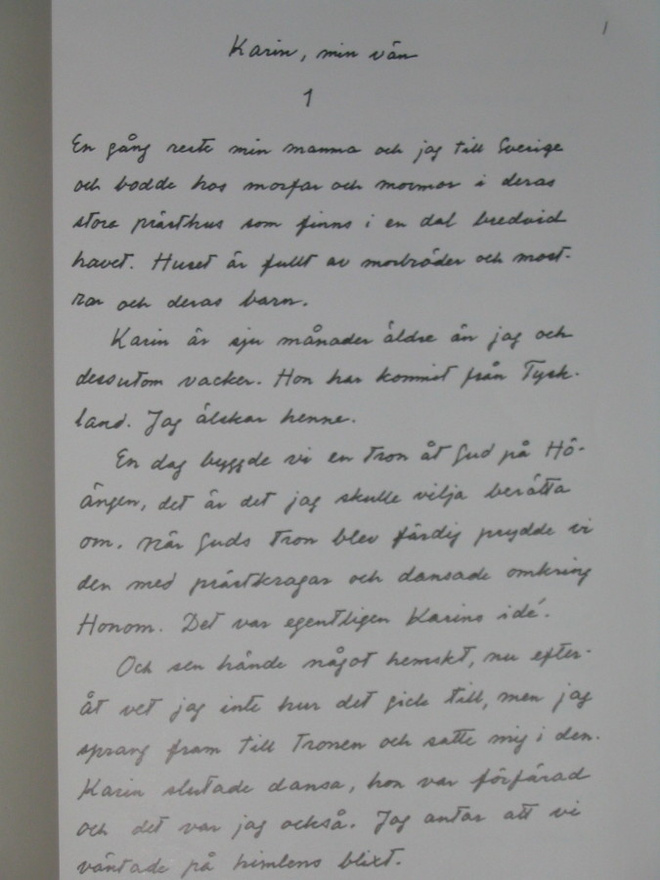 1
Karin, min vän
1
En gång reste min mamma och jag till Sverige
och bodde hos morfar och mormor i deras
stora prästhus som finns i en dal bredvid
havet. Huset är fullt av morbröder och most-
rar och deras barn.
Karin är sju månader äldre än jag och
dessutom vacker. Hon har kommit från Tysk-
land. Jag älskar henne.
En dag byggde vi en tron åt Gud på Hö-
ängen, det är det jag skulle vilja berätta
om. När Guds tron blev färdig prydde vi
den med prästkragar och dansade omkring
Honom. Det var egentligen Karins idé.
Och sen hände något hemskt, nu efter-
åt vet jag inte hur det gick till, men jag
sprang fram till Tronen och satte mig i den.
Karin slutade dansa, hon var förfärad
och det var jag också. Jag antar att vi
väntade på himlens blixt.